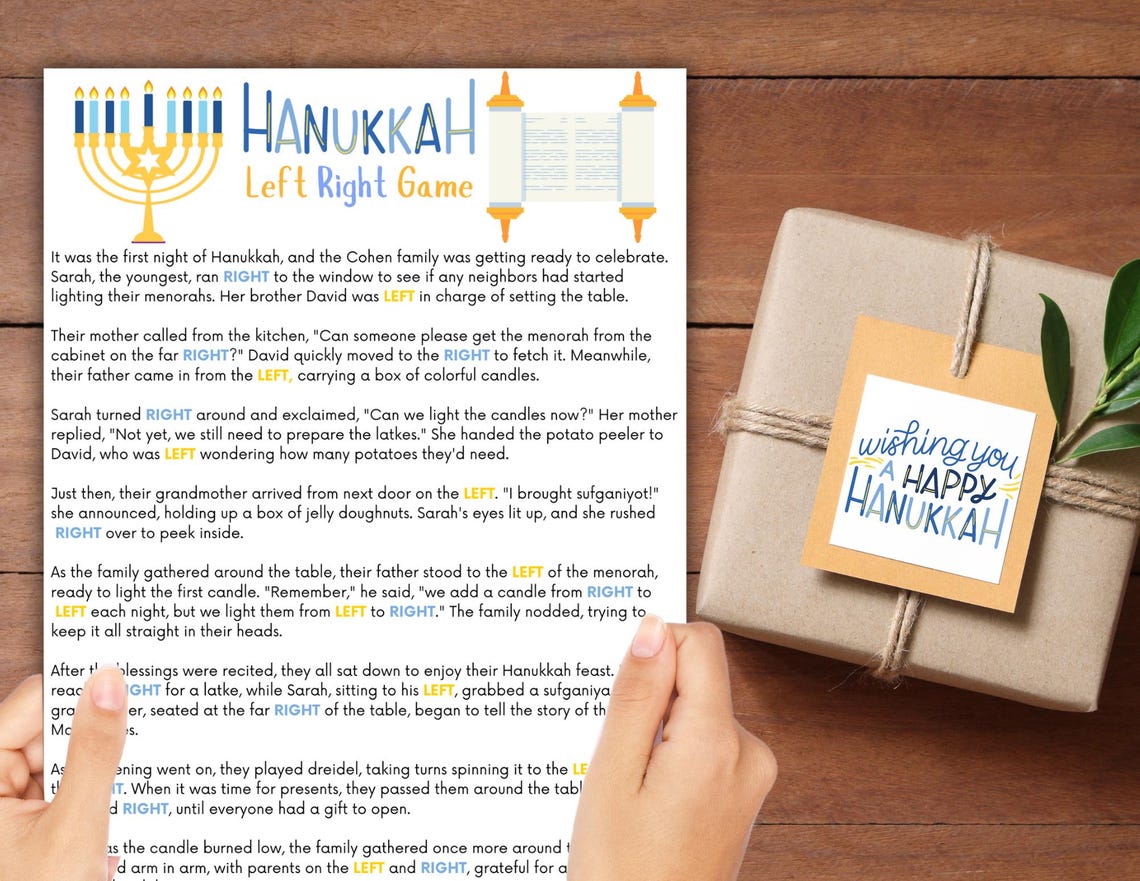 HANUKKAH
Left Right Game
It was the first night of Hanukkah, and the Cohen family was getting ready to celebrate.
Sarah, the youngest, ran RIGHT to the window to see if any neighbors had started
lighting their menorahs. Her brother David was LEFT in charge of setting the table.
Their mother called from the kitchen, "Can someone please get the menorah from the
cabinet on the far RIGHT?" David quickly moved to the RIGHT to fetch it. Meanwhile,
their father came in from the LEFT, carrying a box of colorful candles.
Sarah turned RIGHT around and exclaimed, "Can we light the candles now?" Her mother
replied, "Not yet, we still need to prepare the latkes." She handed the potato peeler to
David, who was LEFT wondering how many potatoes they'd need.
Just then, their grandmother arrived from next door on the LEFT. "I brought sufganiyot!"
she announced, holding up a box of jelly doughnuts. Sarah's eyes lit up, and she rushed
RIGHT over to peek inside.
As the family gathered around the table, their father stood to the LEFT of the menorah,
ready to light the first candle. "Remember," he said, "we add a candle from RIGHT to
LEFT each night, but we light them from LEFT to RIGHT." The family nodded, trying to
keep it all straight in their heads.
After blessings were recited, they all sat down to enjoy their Hanukkah feast.
for a latke, while Sarah, sitting to his LEFT, grabbed a
seated at the far RIGHT of the table, began to tell the story of
went on, they played dreidel, taking turns spinning it to the
When it was time for presents, they passed them around the
RIGHT, until everyone had a gift to open.
the candle burned low, the family gathered once more around
arm in arm, with parents on the LEFT and RIGHT, grateful for
wishing you
A HAPPY
HANUKKAH